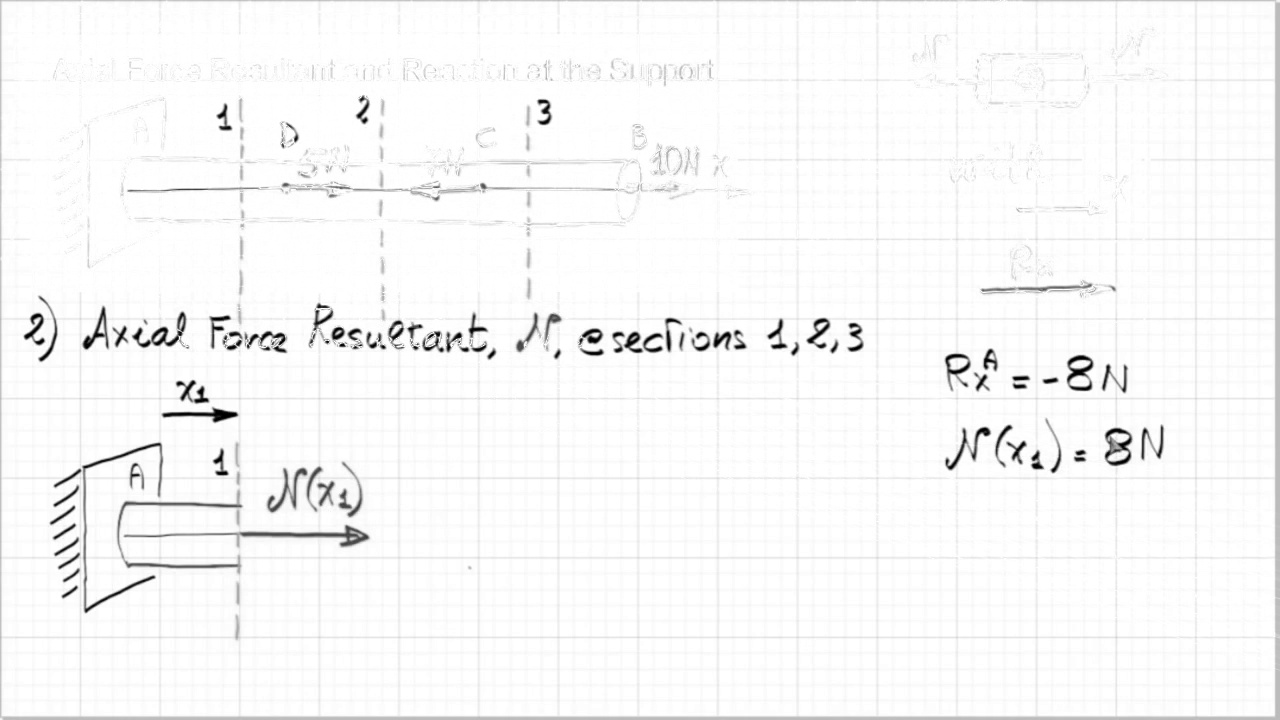 Axial Force Resultant and Reaction at the Support
N N
1 2 3
A D C B
5N 7N 10N x
with x
Rx
2) Axial Force Resultant, N, @ sections 1, 2, 3
x1
Rx^A = -8N
N(x1) = 8N
A 1 N(x1)